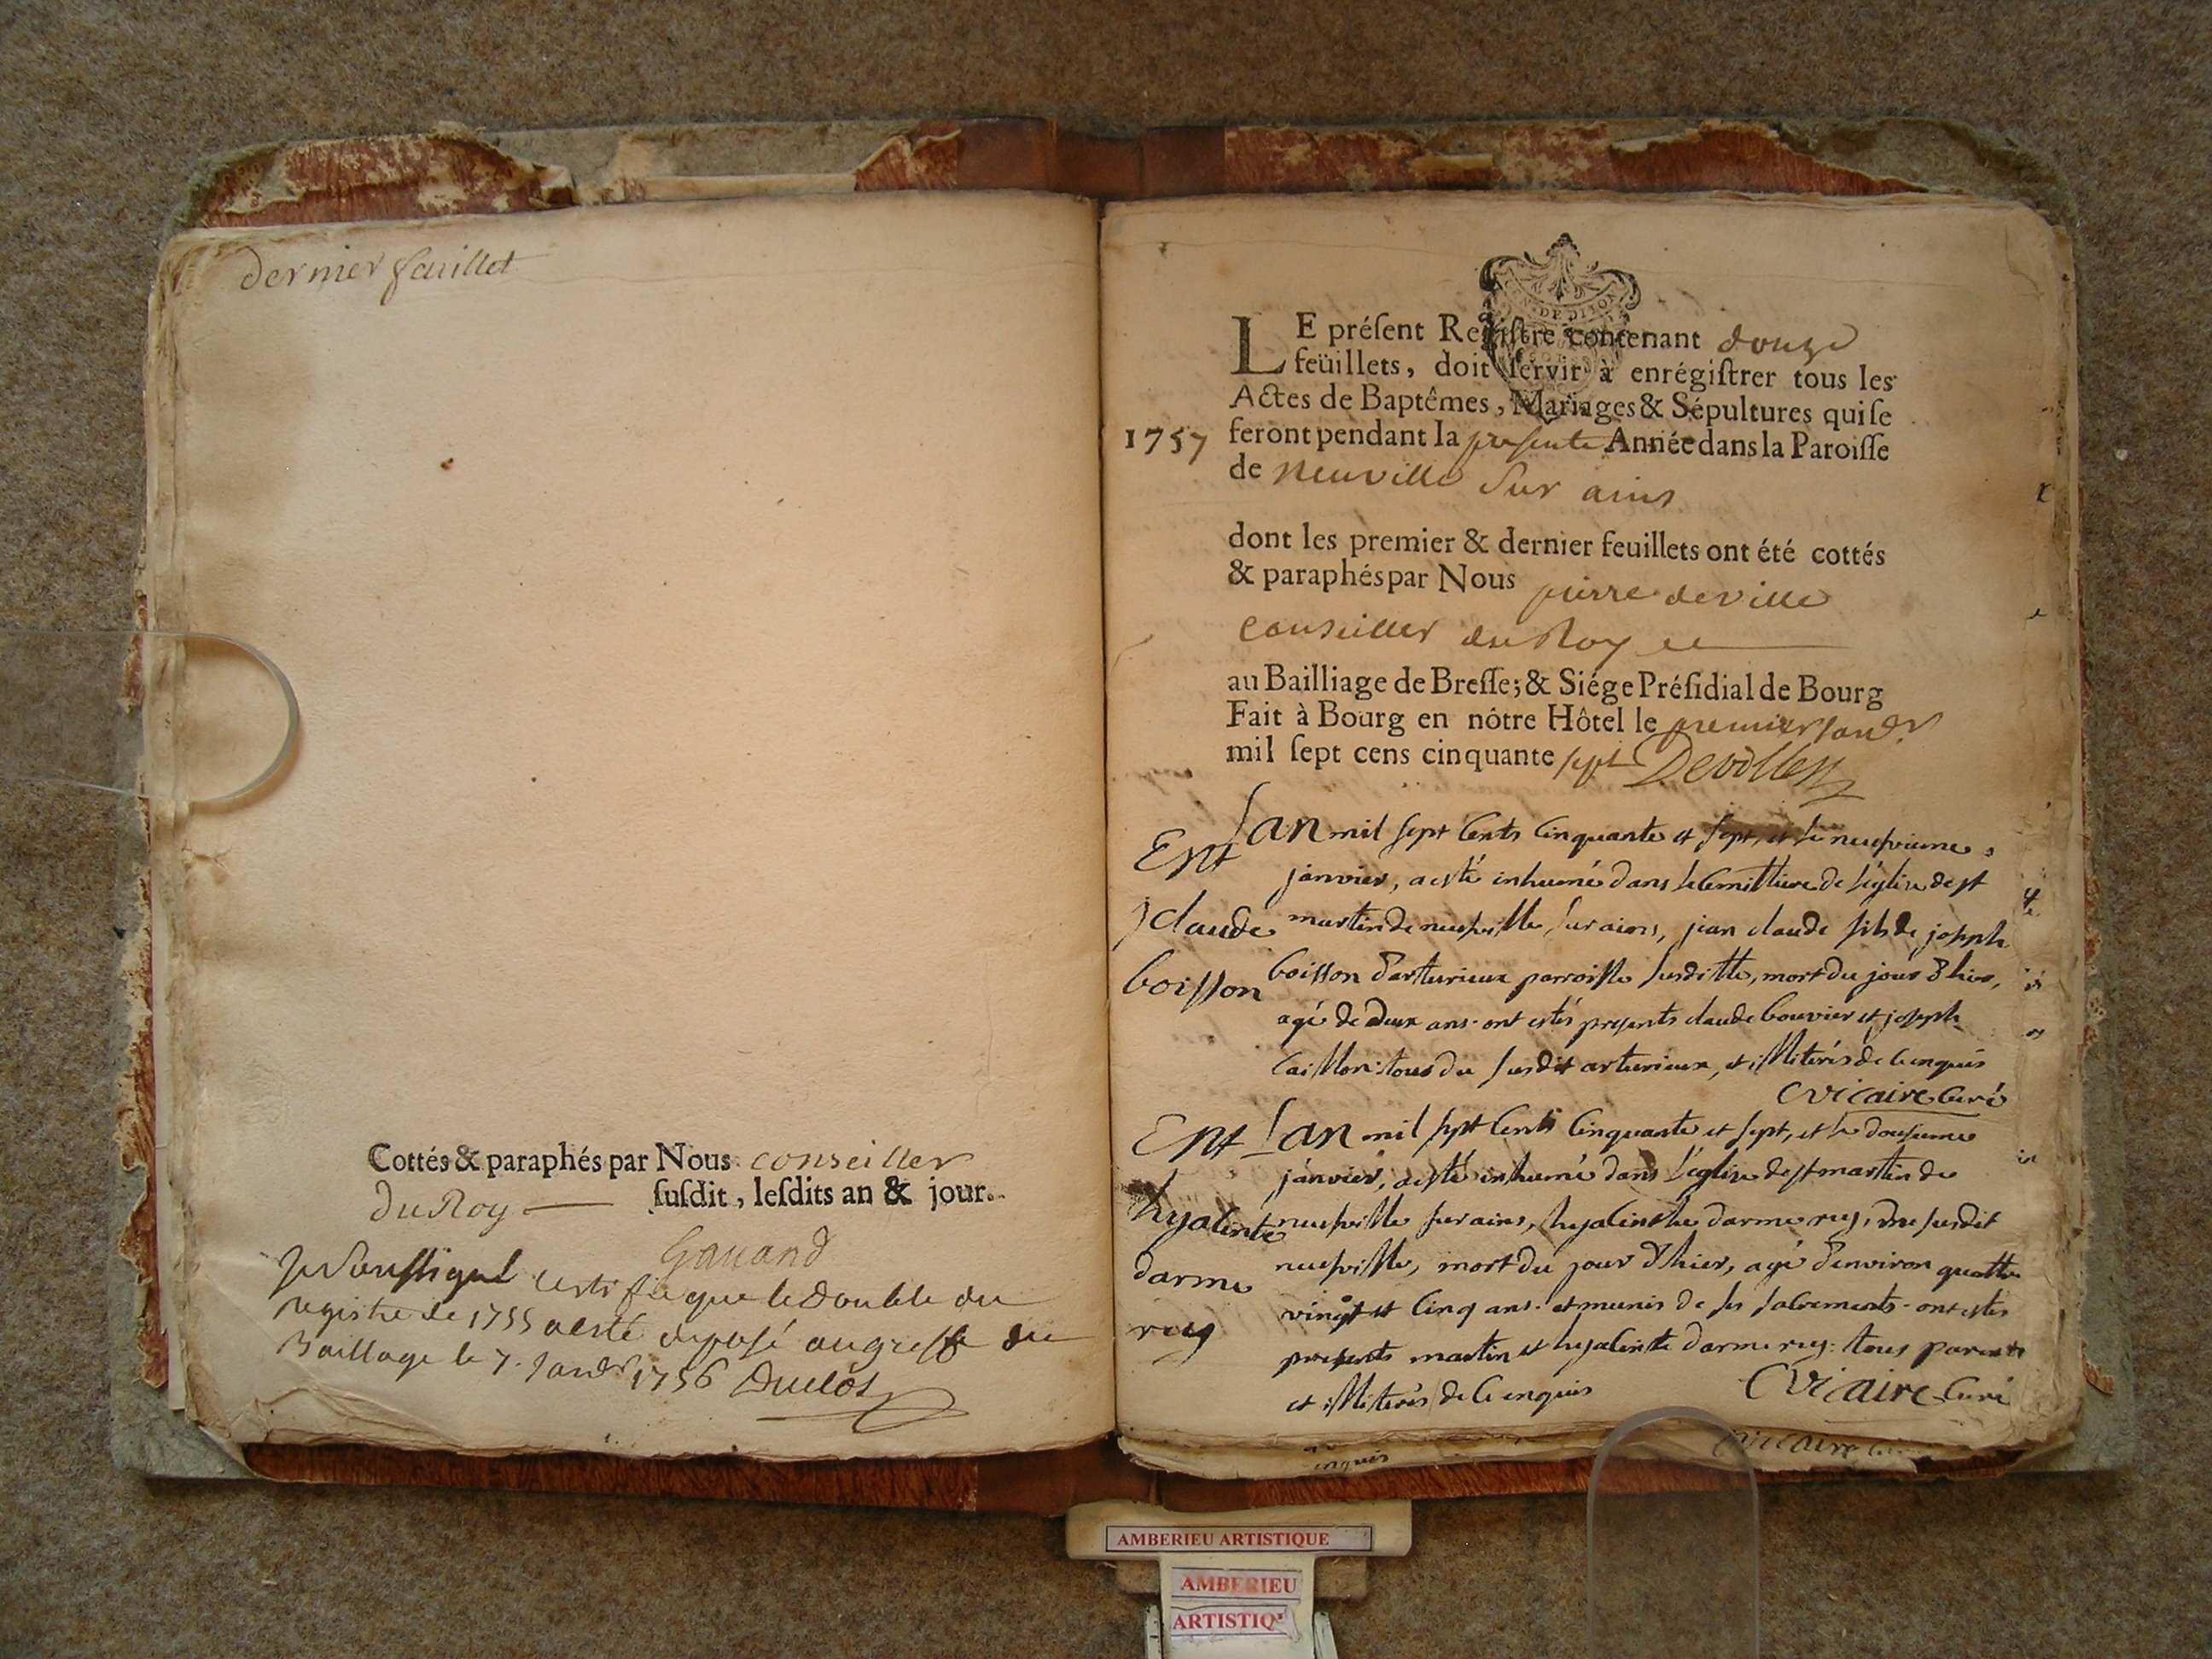 dernier feuillet
Cottés & paraphés par Nous conseiller
du Roy ſuſdit, leſdits an & jour.
Gauand
Je soussigné certifie que le double du
registre de 1755 a esté deposé au greffe du
Baillage le 7. Janvr 1756 Duclos
LE préſent Regiſtre contenant douze
feüillets, doit ſervir à enrégiſtrer tous les
Actes de Baptêmes, Mariages & Sépultures qui ſe
1757 feront pendant la presente Année dans la Paroiſſe
de neuville sur ains
dont les premier & dernier feuillets ont été cottés
& paraphés par Nous pierre deville
conseiller du Roy
au Bailliage de Breſſe; & Siége Préſidial de Bourg
Fait à Bourg en nôtre Hôtel le premier janvr
mil ſept cens cinquante sept Deville
Ent
j claude
boisson
Lan mil sept cents cinquante et sept, et le neufvieme
janvier, a esté inhumé dans le cemittiere de l'église de st
martin de neufville sur ains, jean claude fils de joseph
boisson d'arturieux parroisse susditte, mort du jour d'hier,
agé de deux ans. ont estés presents claude bouvier et joseph
caillon tous du susdit arturieux, et illiterés de ce enquis
C vicaire curé
Ent
hyalinte
darme
rey
Lan mil sept cents cinquante et sept, et le dousieme
janvier, a esté inhumé dans l'église de st martin de
neufville sur ains, hyalinthe darme rey, du susdit
neufville, mort du jour d'hier, agé d'environ quattre
vingt et cinq ans. et munis de ses sacrements. ont estés
presents martin et hyalinte darme rey: tous parents
et illiterés de ce enquis C Vicaire Curé
enquis
C vicaire
AMBERIEU ARTISTIQUE
AMBERIEU
ARTISTIQ